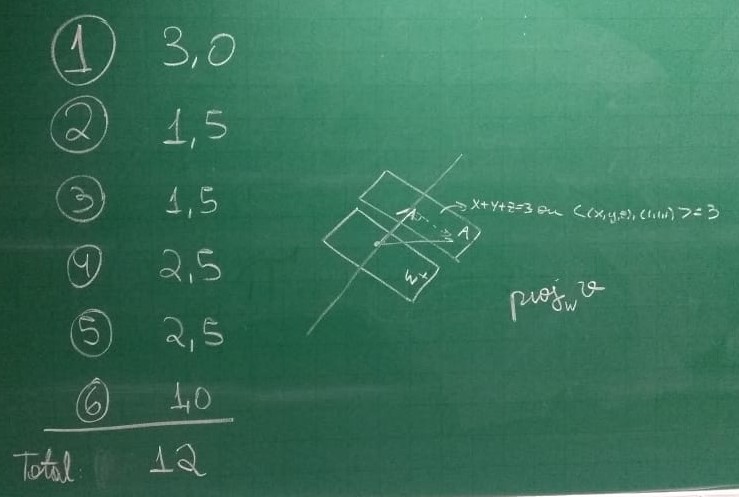 1 3,0
2 1,5
3 1,5
4 2,5
5 2,5
6 1,0
Total: 12
x+y+z=3 ou <(x,y,z),(1,1,1)>=3
A
W⊥
proj_W v